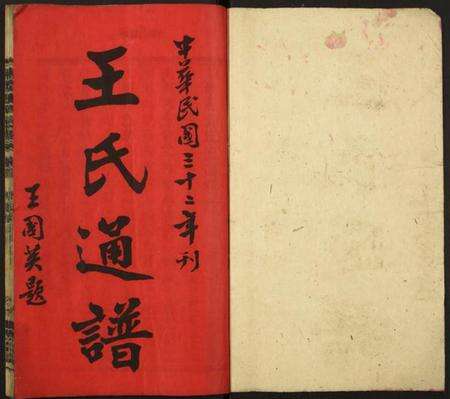 中華民国三十二年刊
王氏通譜
王国英題